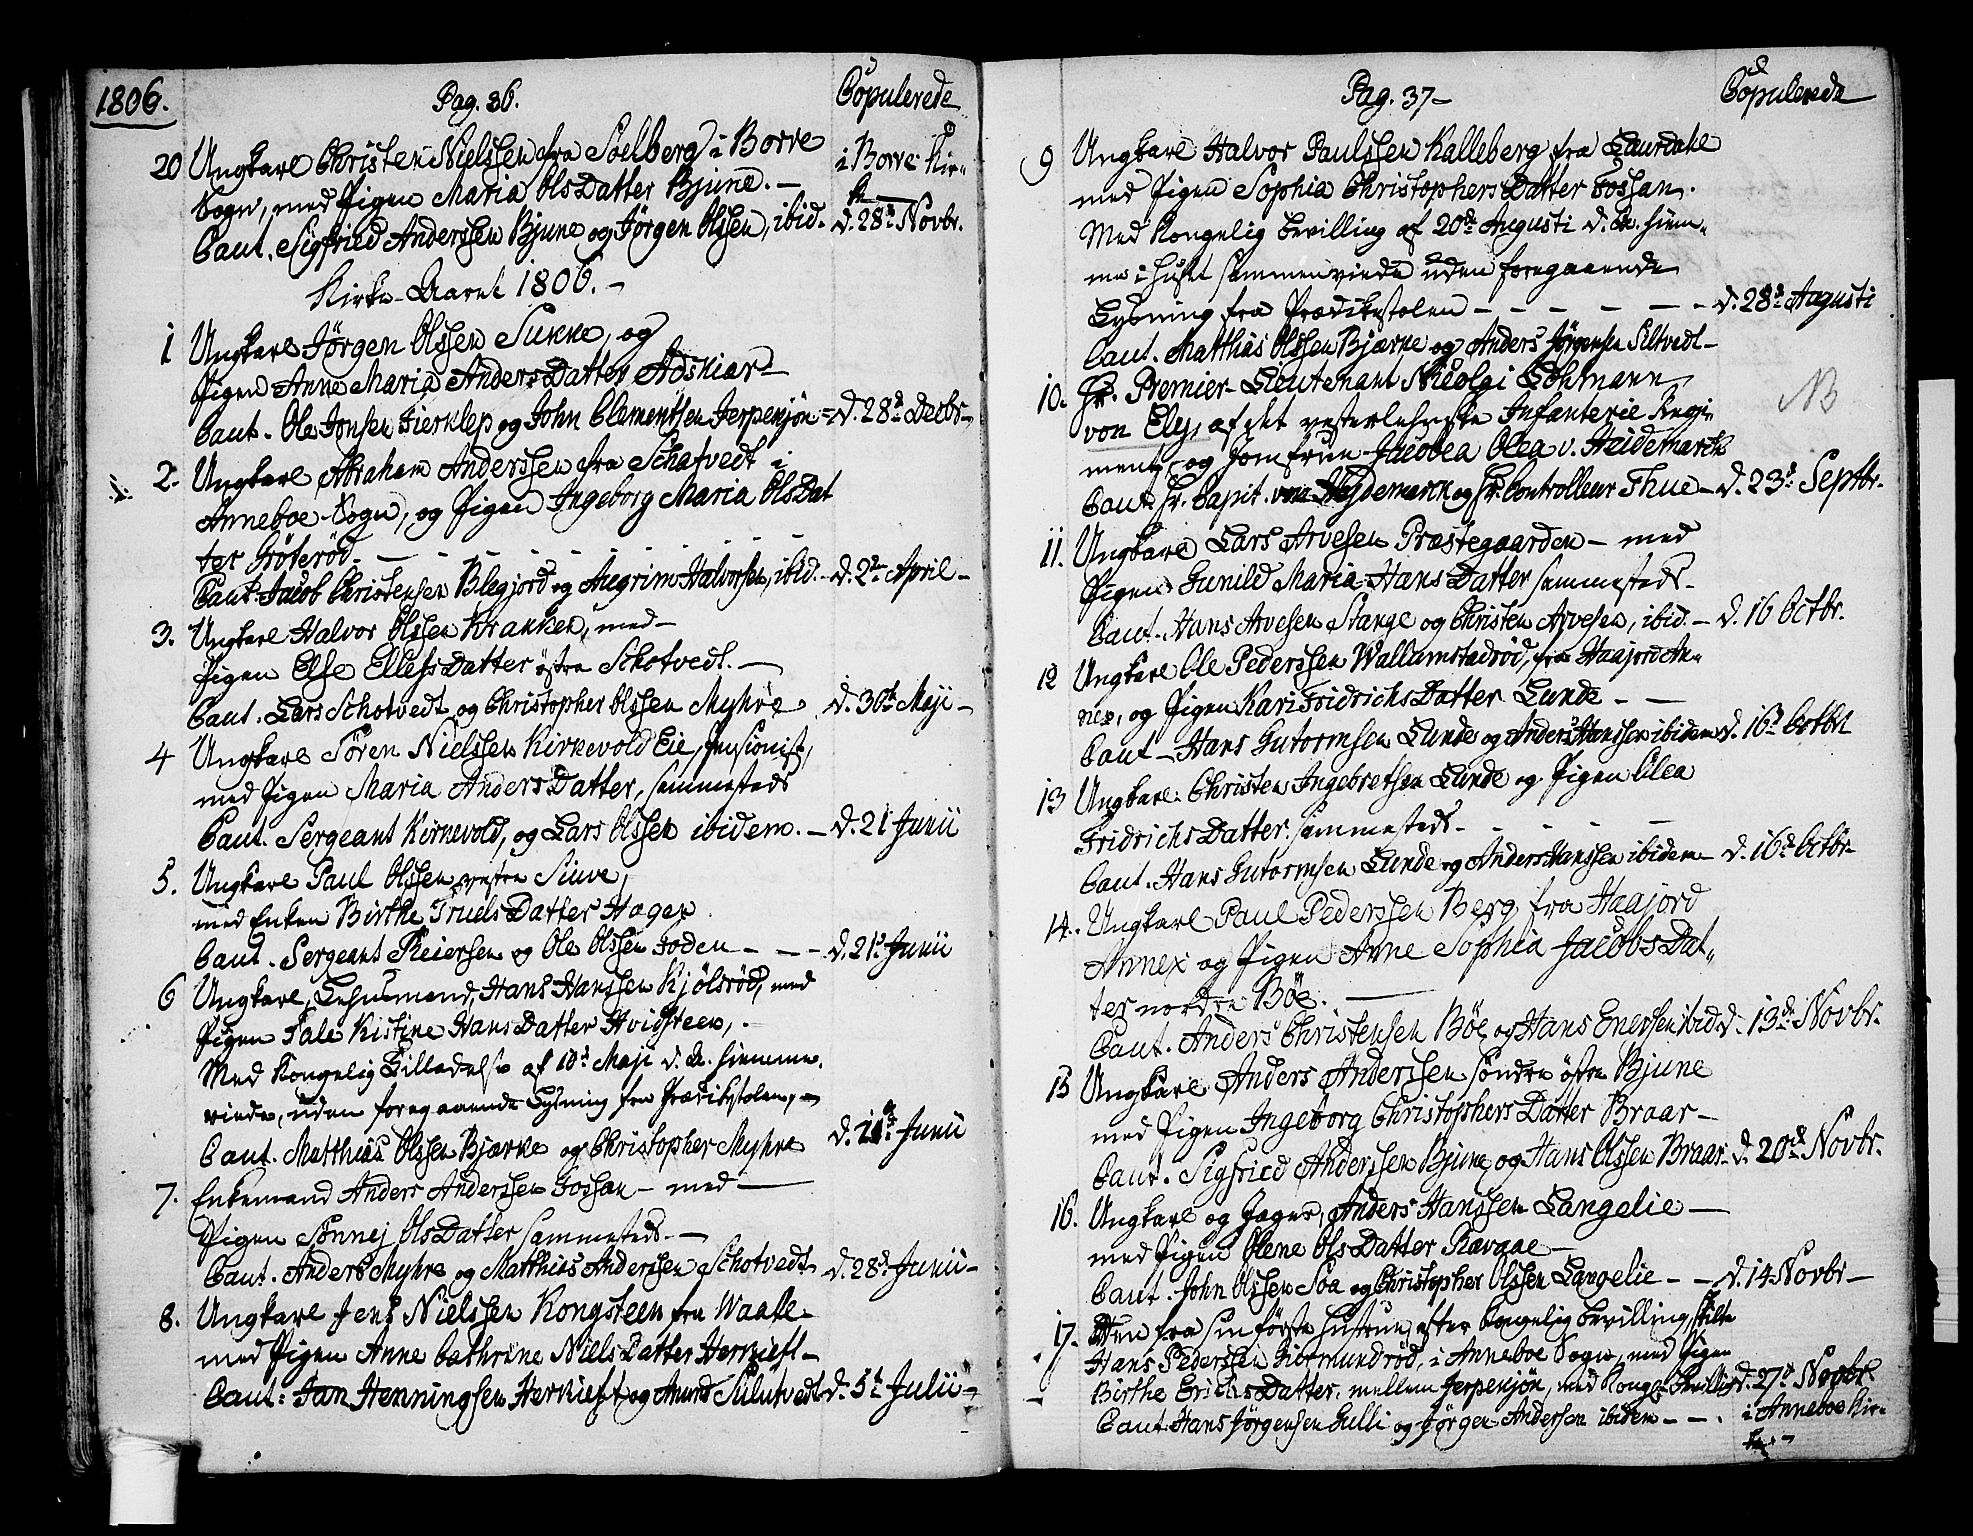 1806.
Pag. 36.
Copulerede
20 Ungkarl Christen Nielssen fra Soelberg i Borre
Sogn, med Pigen Maria OlsDatter Bjune. —
Caut. Sigfried Anderssen Bjune og Jørgen Olssen, ibid.
i Borre Kir-
ke
d. 28de Novbr.
Kirke-Aaret 1806. —
1 Ungkarl Jørgen Olssen Sukke, og
Pigen Anne Maria AndersDatter Adskiær —
Caut. Ole Jonsen Fierklep og John Clementsen Jerpekjøn = d. 28d Decbr —
2. Ungkarl Abraham Anderssen fra Schafvedt i
Anneboe Sogn, og Pigen Ingeborg Maria OlsDat
ter Gröteröd. —
Caut. Jacob Christensen Blegjord og Angrim Halvorsen, ibid. — d. 2de April —
3. Ungkarl Halvor Olssen Krakken, med —
Pigen Else EllefsDatter østre Schotvedt. —
Caut. Lars Schotvedt og Christopher Olssen Myhre d. 30te Maji —
4 Ungkarl Søren Nielssen Kirkevold Eie, Pensionist,
med Pigen Maria AndersDatter, sammesteds
Caut. Sergeant Kirkevold, og Lars Olssen ibidem. — d. 21 Junii
5. Ungkarl Paul Olssen vestre Siuve,
med Enken Birthe TruelsDatter Hagen
Caut. Sergeant Reiersen og Ole Olssen Foden — — — d. 21d Junii
6 Ungkarl, Leysmand, Hans Hanssen Kjölsröd, med
Pigen Tale Kistine HansDatter Hvidsteen, .
Med Kongelig Tilladelse af 10d Maji d. A. hiemme
viede, uden foregaaende Lysning fra Prædikestolen, —
Caut. Matthias Olssen Bjærke og Christopher Myhre
d. 21de Junii
7. Enkemand Anders Anderssen Fossan — med —
Pigen Sønnej OlsDatter sammesteds. —
Caut. Anders Myhre og Matthias Anderssen Schotvedt d. 28d Junii —
8. Ungkarl Jens Nielssen Kongsteen fra Waale
med Pigen Anne Cathrine NielsDatter Herkiest —
Caut: Jan Henningsen Herkiest og Amund Sulutvedt d. 5te Julii —
Pag. 37 —
Copulerede
9 Ungkarl Halvor Paulssen Kalleberg fra Laurdahl
med Pigen Sophia ChristophersDatter Fossan.
Med Kongelig Bevilling af 20de Augusti d. A. hiem-
me i Huset sammenviede uden foregaaende
Lysning fra Prædikestolen — — — — — — d. 28d Augusti
Caut. Matthias Olssen Bjærke og Anders Jørgensen Siltvedt —
10. Hr. Premier-Lieutenant Nicolai Lohmann
von Ely, af det vesterlehnske Infanterie Regi-
ment, og Jomfrue Jacobea Olea v. Heidemarck
NB
Caut. Hr. Capit. von Heydemarck og Hr. Controlleur Thue — d. 23d Septbr.
11. Ungkarl Lars Arvesen Præstegaarden — med
Pigen Gunild Maria HansDatter sammesteds —
Caut. Hans Arvesen Stange og Christen Arvesen, ibid. — d. 16 Octbr.
12 Ungkarl Ole Pederssen Wallumstadröd, fra Haajord An-
nex, og Pigen Kari FridrichsDatter Lunde — —
Caut — Hans Gutormsen Lunde og Anders Hanssen ibidem d. 16d Octbr
13 Ungkarl Christen Ingebretsen Lunde og Pigen Olea
FridrichsDatter sammesteds — — — —
Caut. Hans Gutormsen Lunde og Anders Hanssen ibidem — d. 16d Octbr —
14. Ungkarl Paul Pederssen Berg fra Haajord
Annex og Pigen Anne Sophia JacobsDat-
ter nordre Böe. —
Caut. Anders Christensen Böe og Hans Enersen ibid d. 13de Novbr.
15 Ungkarl Anders Anderssen söndre østre Bjune
med Pigen Ingeborg ChristophersDatter Braar —
Caut. Sigfried Anderssen Bjune og Hans Olssen Braar. d. 20de Novbr.
16. Ungkarl og Jæger, Anders Hanssen Langelie —
med Pigen Olene OlsDatter Ravaae —
Caut. John Olssen Soa og Christopher Olssen Langelie — — d. 14 Novbr —
17. Den fra sin første Hustrue efter Kongelig Bevilling skilte
Hans Pederssen Giermundröd, i Anneboe Sogn, med Pigen
Birthe ErichsDatter mellem Jerpekjøn, med Kongel. Bevilling d. 27de Novbr
Caut. Hans Jørgensen Gulli og Jørgen Andersen ibidem — — .
i Anneboe Kir-
ke. —